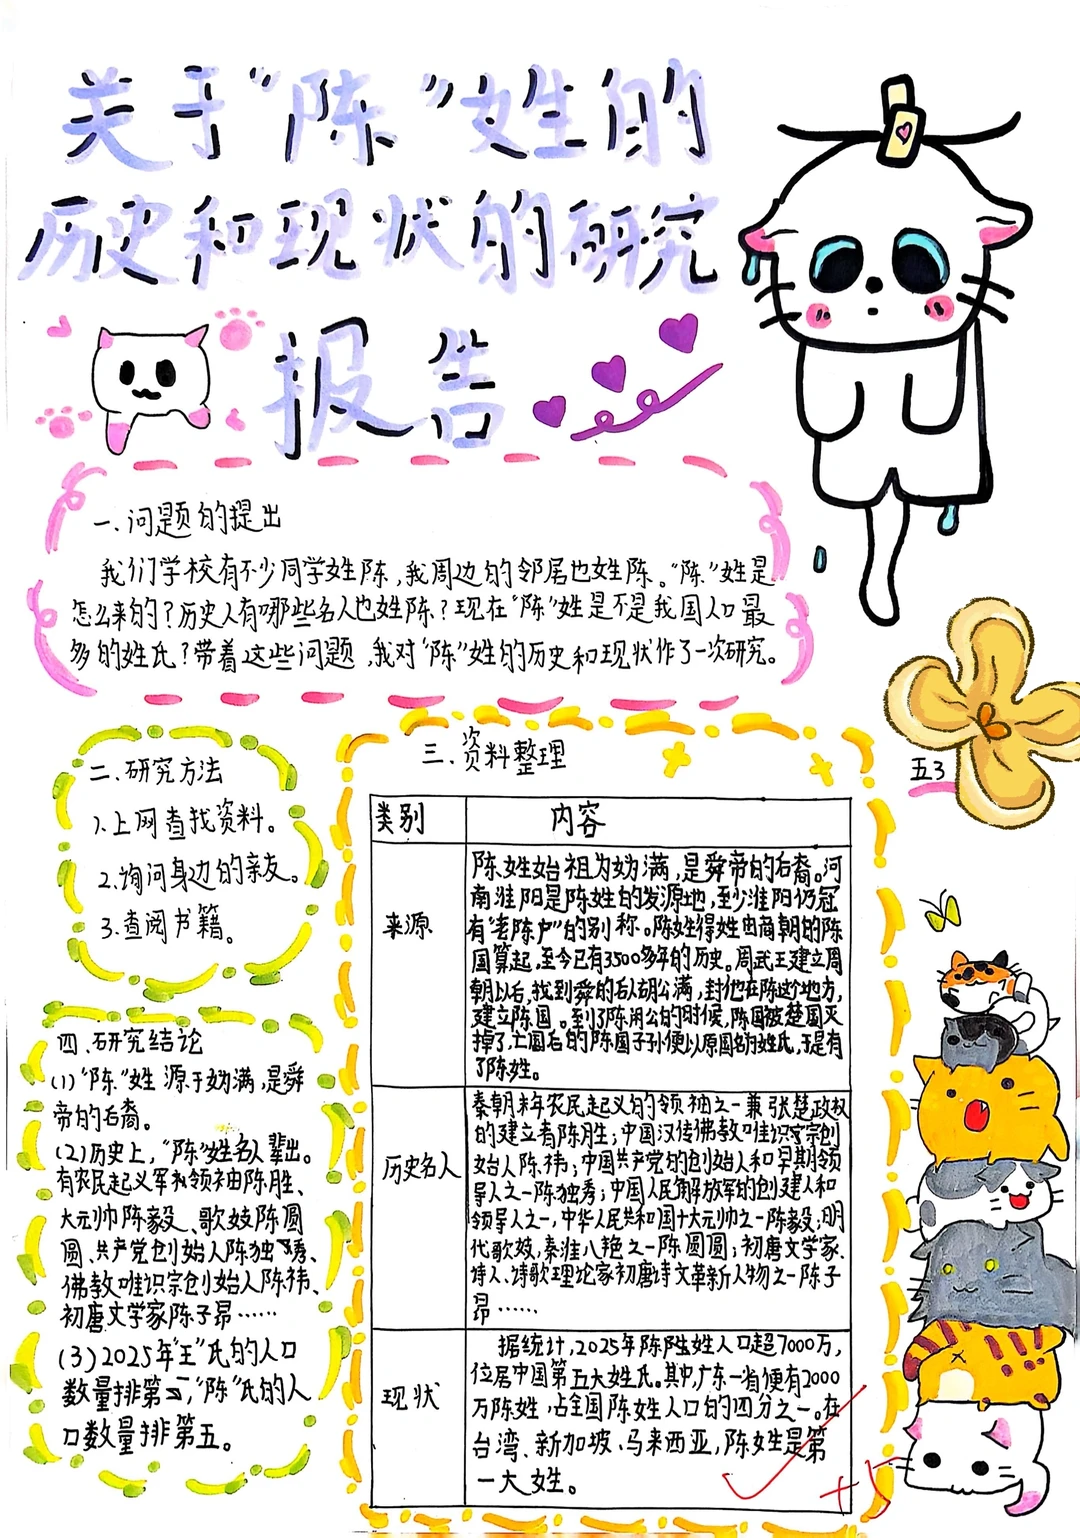 关于“陈”姓的
历史和现状的研究
报告
一、问题的提出
我们学校有不少同学姓陈，我周边的邻居也姓陈。“陈”姓是
怎么来的？历史人有哪些名人也姓陈？现在“陈”姓是不是我国人口最
多的姓氏？带着这些问题，我对“陈”姓的历史和现状作了一次研究。
二、研究方法
1.上网查找资料。
2.询问身边的亲友。
3.查阅书籍。
三、资料整理
五3
类别
内容
来源
陈姓始祖为妫满，是舜帝的后裔。河
南淮阳是陈姓的发源地，至少淮阳仍冠
有“老陈户”的别称。陈姓得姓由商朝的陈
国算起，至今已有3500多年的历史。周武王建立周
朝以后，找到舜的后人胡公满，封他在陈这个地方，
建立陈国。到了陈闵公的时候，陈国被楚国灭
掉了，亡国后的陈国子孙便以原国名为姓氏，于是有
了陈姓。
历史名人
秦朝末年农民起义的领袖之一兼张楚政权
的建立者陈胜；中国汉传佛教唯识宗创
始人陈祎；中国共产党的创始人和早期领
导人之一陈独秀；中国人民解放军的创建人和
领导人之一，中华人民共和国十大元帅之一陈毅；明
代歌妓，秦淮八艳之一陈圆圆；初唐文学家、
诗人、诗歌理论家初唐诗文革新人物之一陈子
昂……
现状
据统计，2025年陈姓人口超7000万，
位居中国第五大姓氏。其中，广东一省便有2000
万陈姓，占全国陈姓人口的四分之一。在
台湾、新加坡、马来西亚，陈姓是第
一大姓。
+5
四、研究结论
(1)“陈”姓源于妫满，是舜
帝的后裔。
(2)历史上，“陈”姓名人辈出。
有农民起义军领袖陈胜、
大元帅陈毅、歌妓陈圆
圆、共产党创始人陈独秀、
佛教唯识宗创始人陈祎、
初唐文学家陈子昂……
(3)2025年“王”氏的人口
数量排第一，“陈”氏的人
口数量排第五。